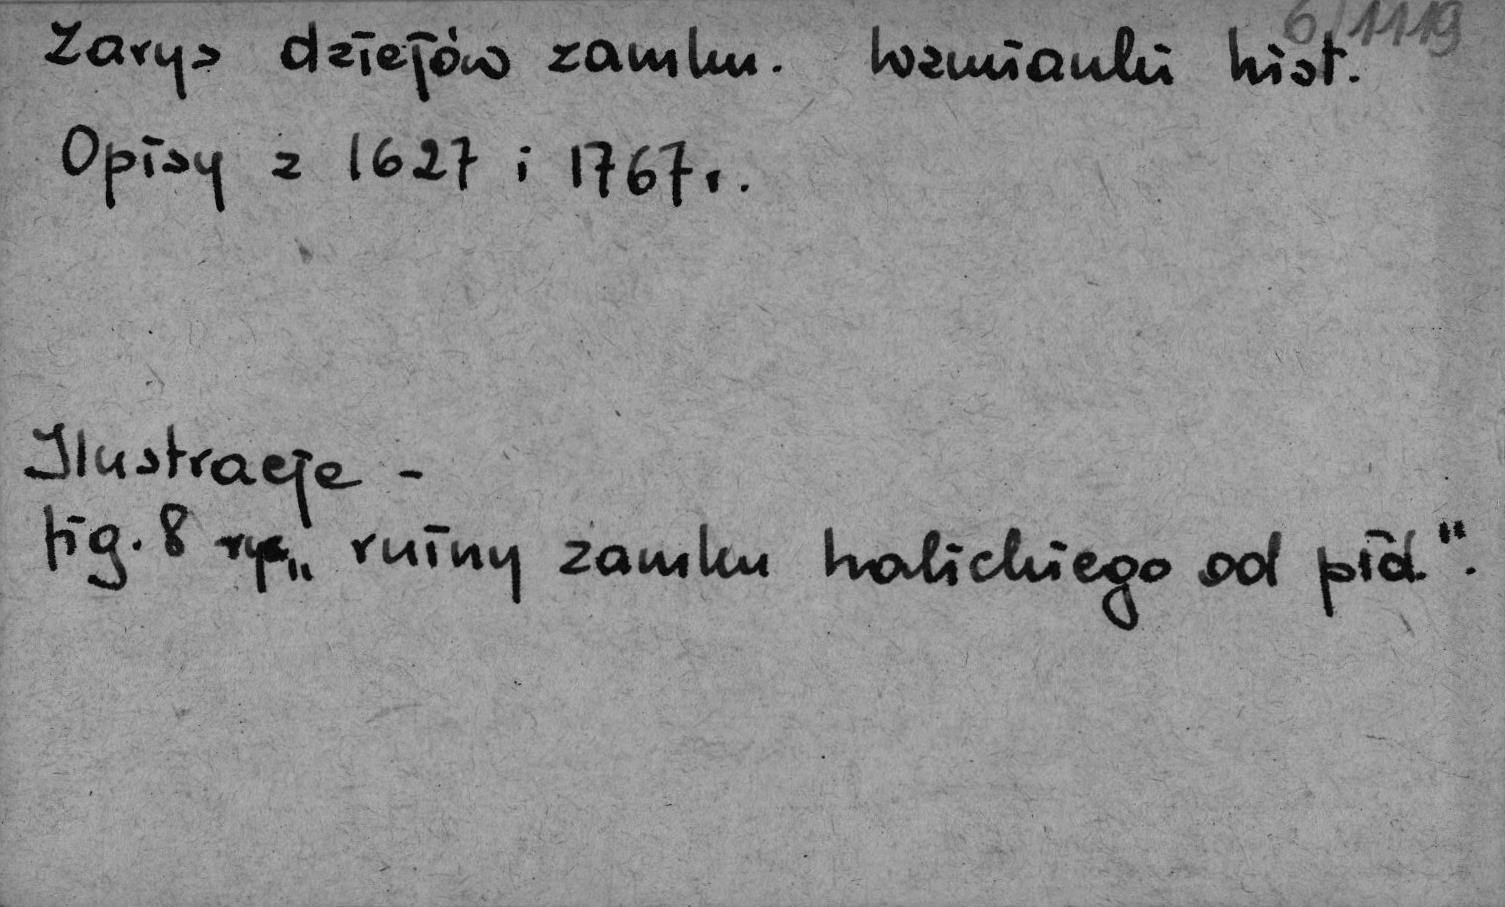 6/1119
Zarys dziejów zamku. Wzmianki hist.
Opisy z 1627 i 1767r.
Ilustracje -
fig. 8 ryc. „ruiny zamku halickiego od płd.".